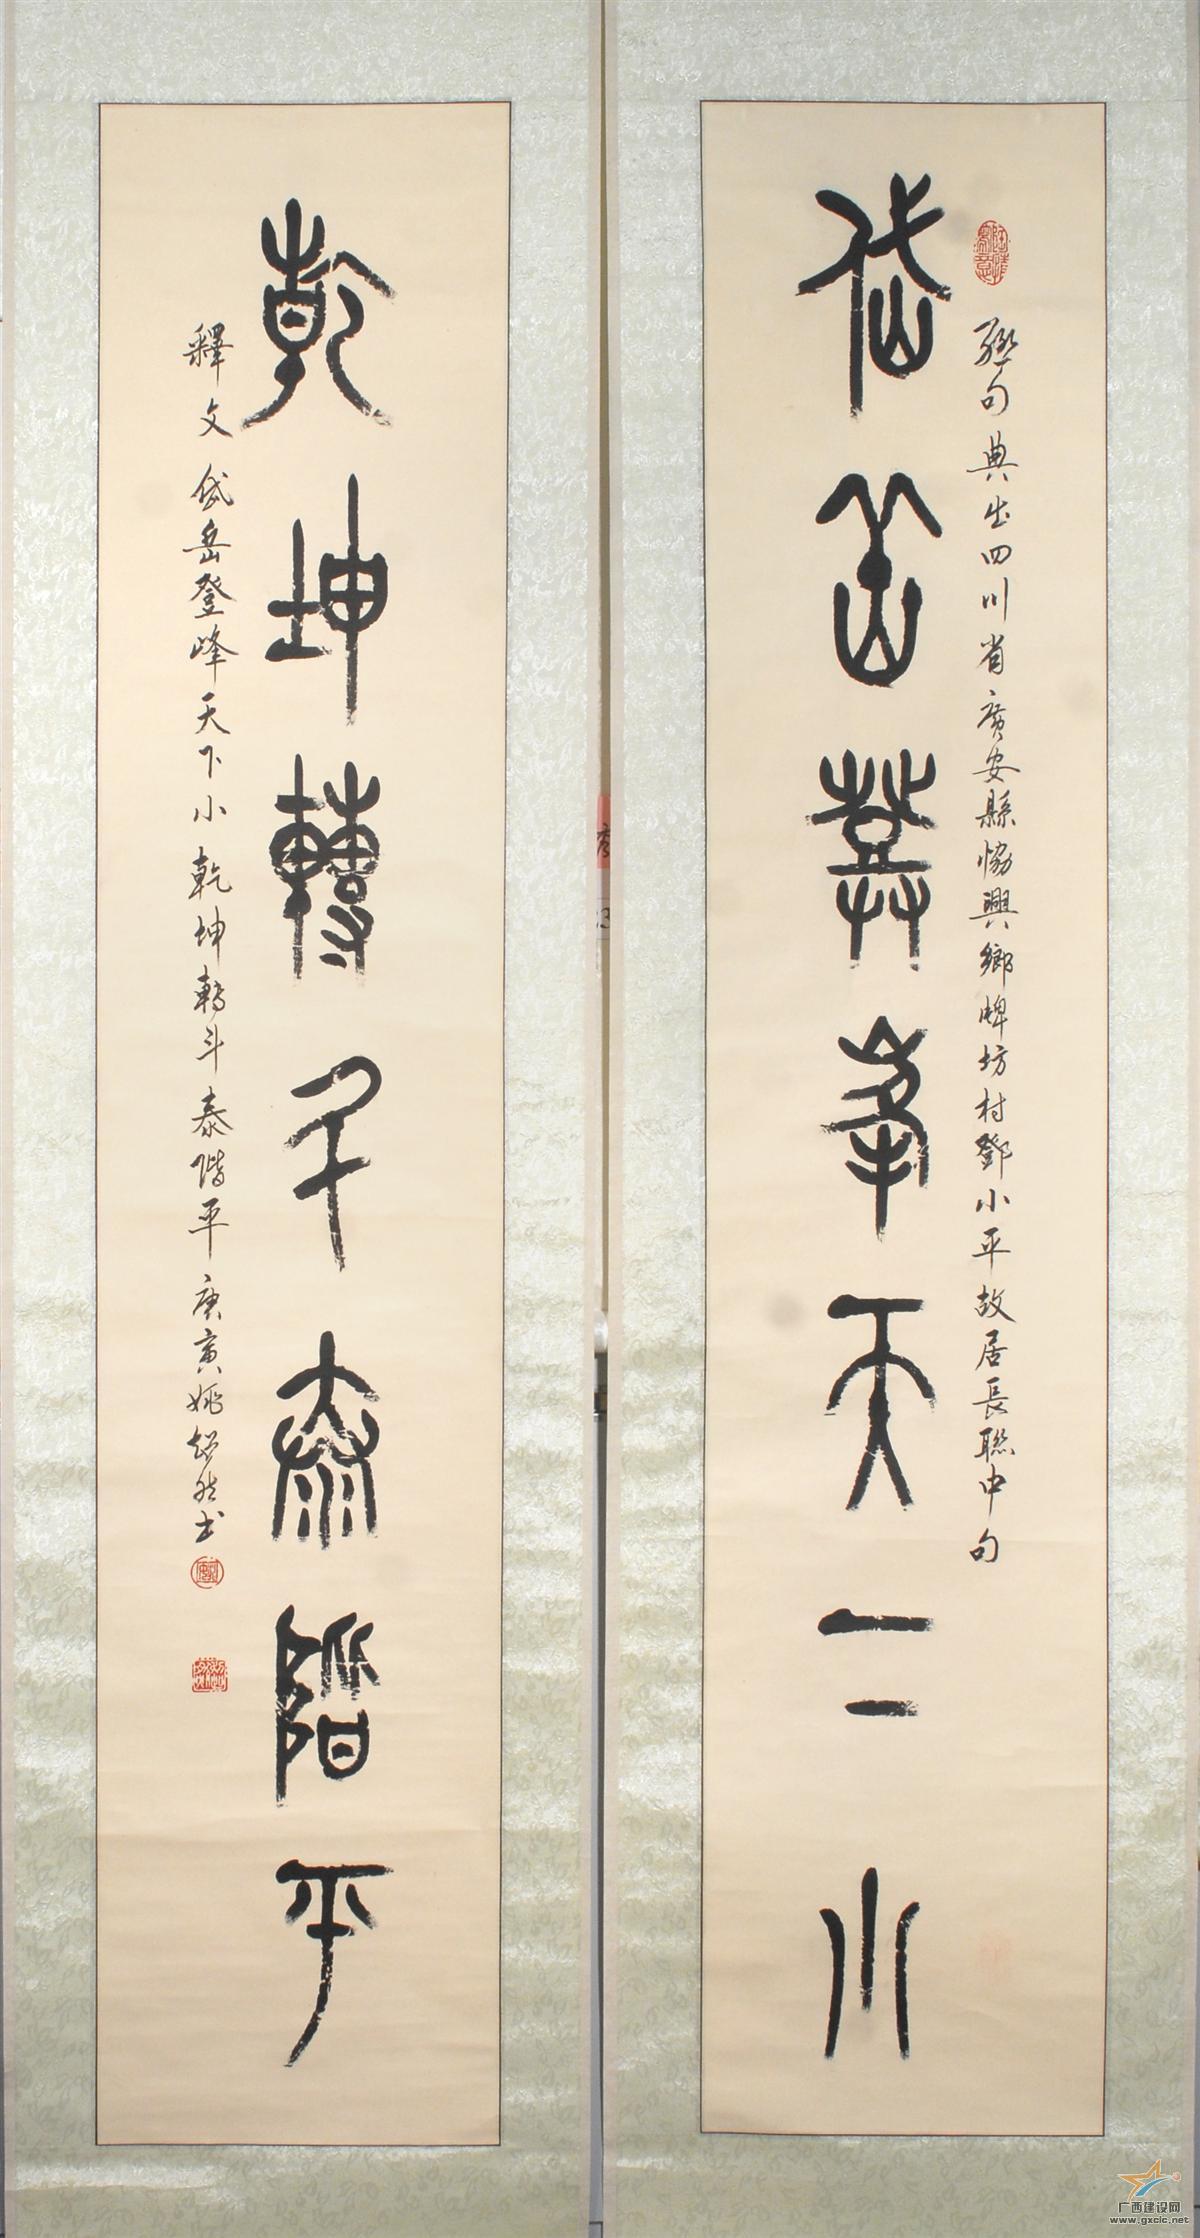 岱岳登峰天下小
聯句典出四川省廣安縣協興鄉牌坊村鄧小平故居長聯中句
乾坤轉斗泰階平
釋文岱岳登峰天下小乾坤轉斗泰階平庚寅姚
书
广西建设网
www.gxcic.net